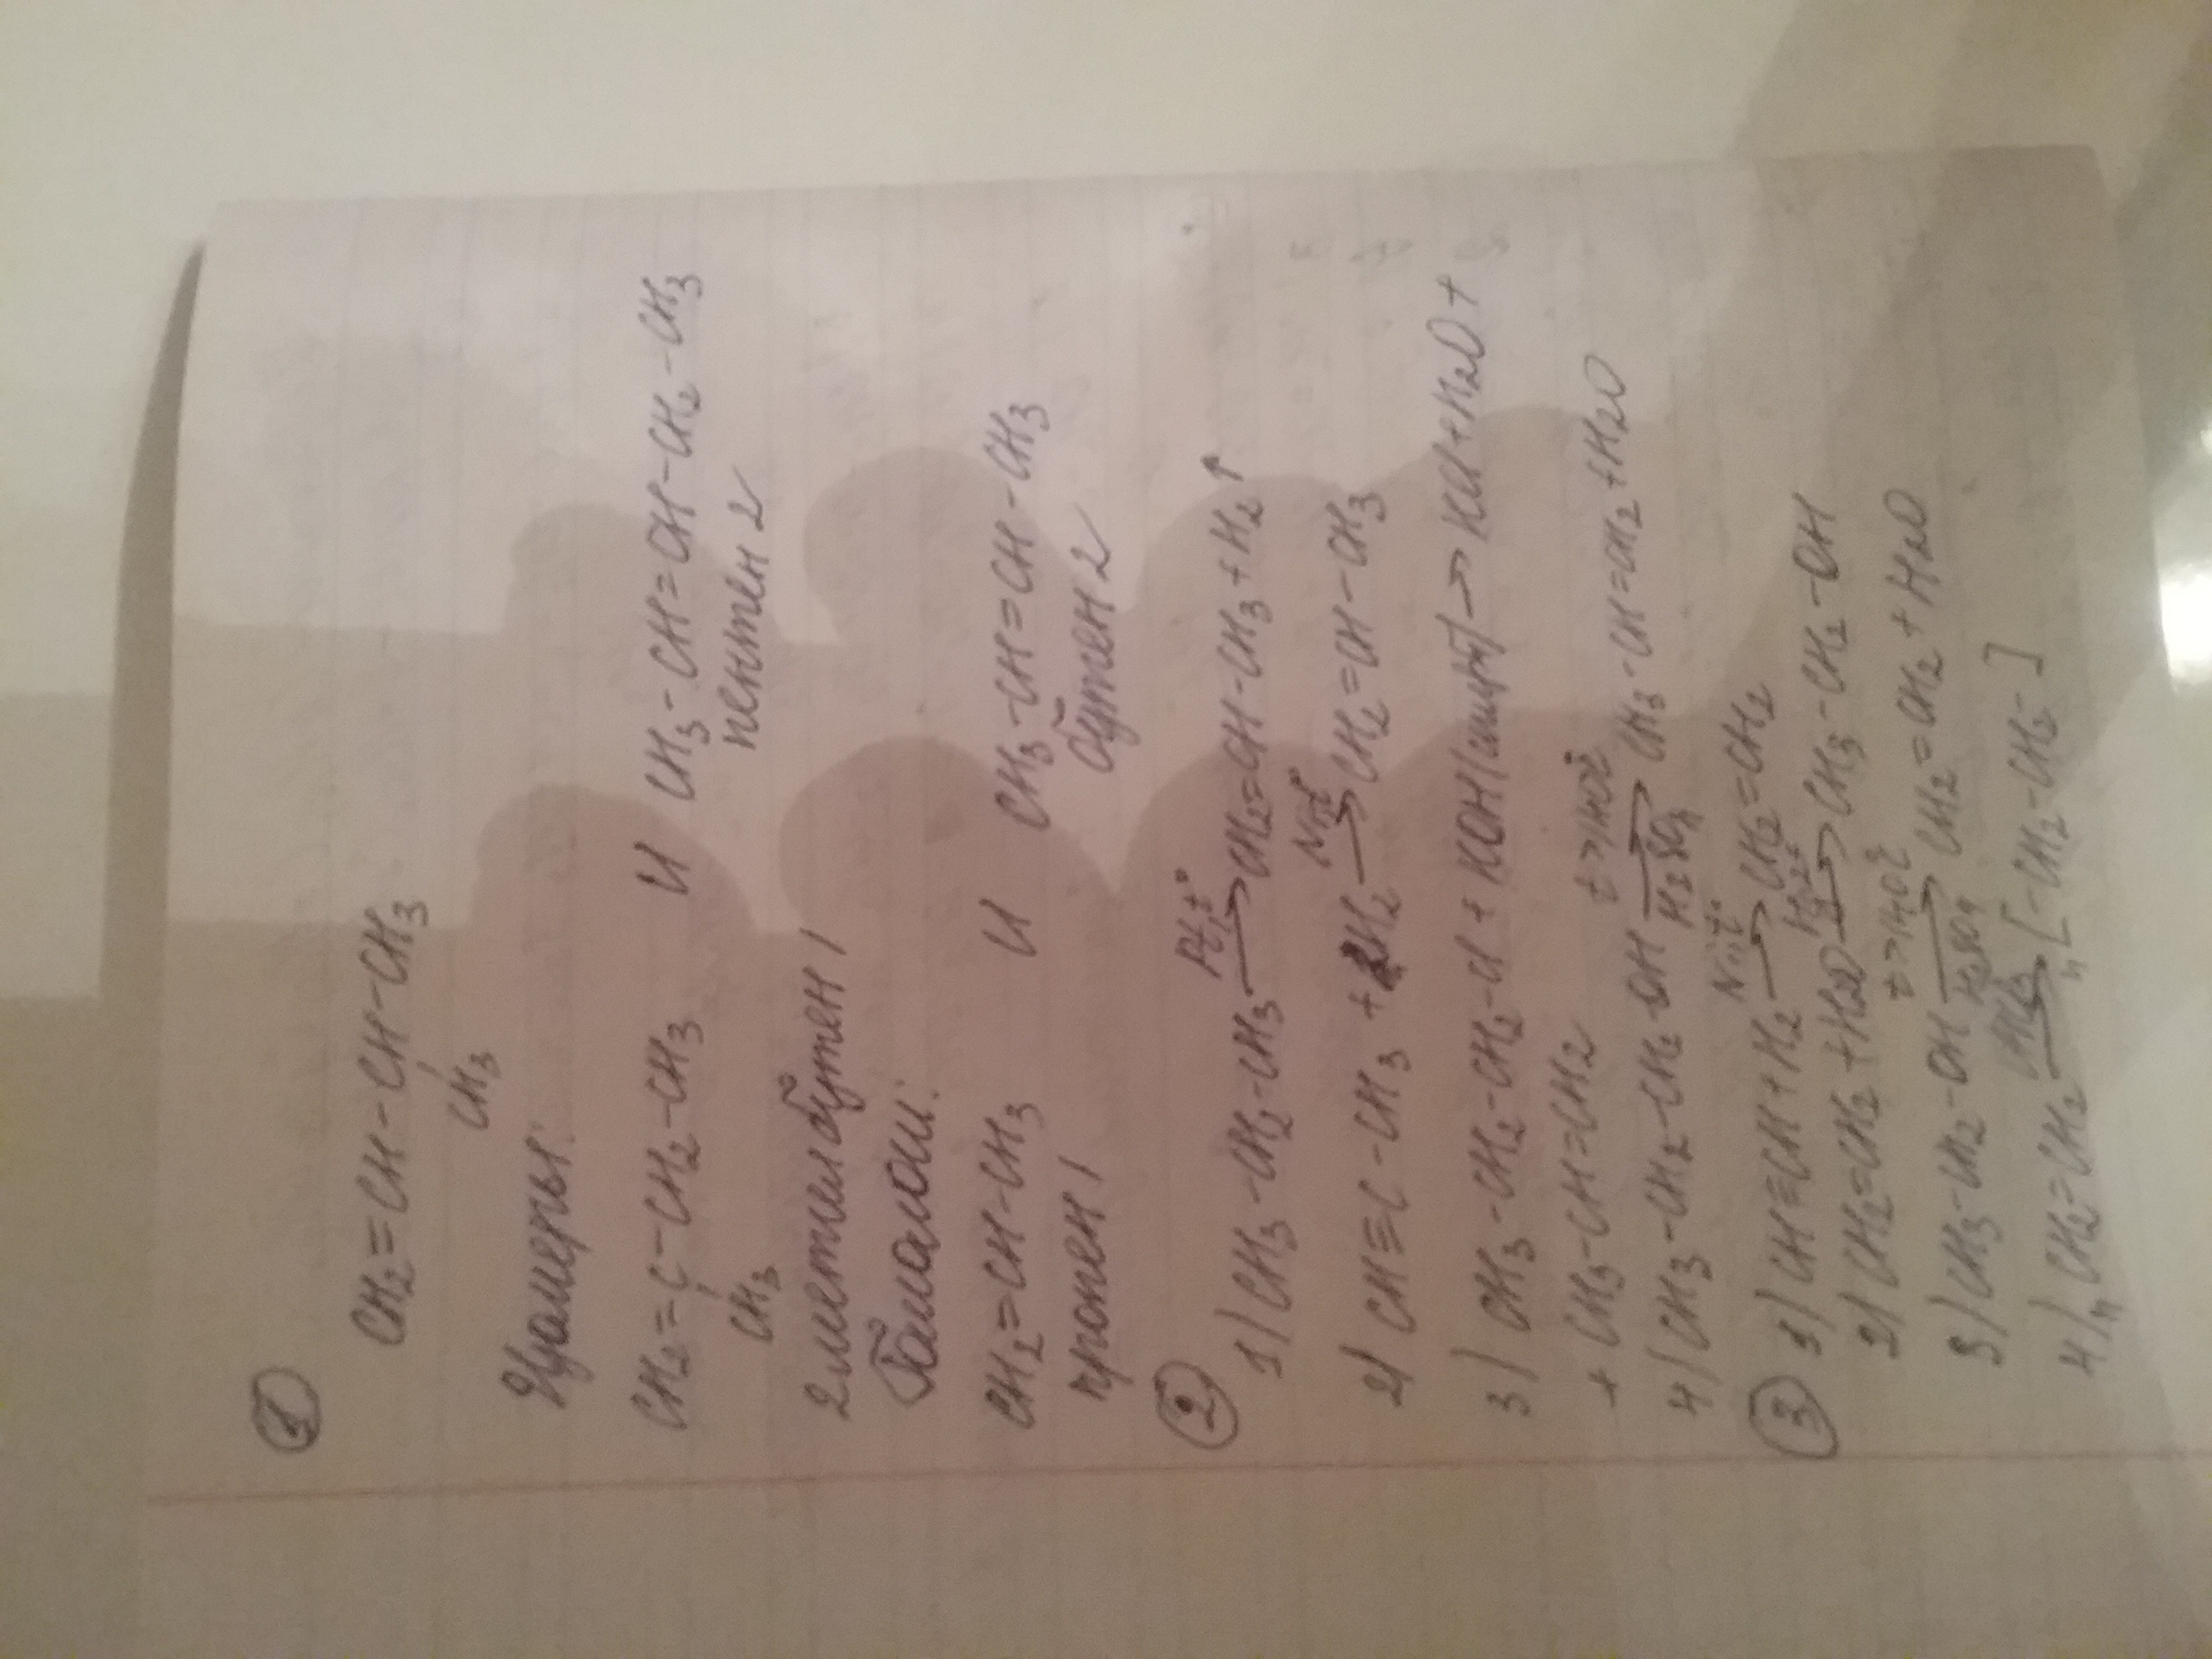 1
CH2=CH-CH-CH3
CH3
Изомеры:
CH2=C-CH2-CH3 и CH3-CH=CH-CH2-CH3
CH3 пентен 2
2метилбутен 1
Гомологи:
CH2=CH-CH3 и CH3-CH=CH-CH3
пропен 1 бутен 2
2 1) CH3-CH2-CH3 Pt,t° → CH2=CH-CH3+H2↑
2) CH≡C-CH3 + H2 Ni,t → CH2=CH-CH3
3) CH3-CH2-CH2-Cl + KOH(спирт) → KCl+H2O+
+ CH3-CH=CH2
4) CH3-CH2-CH2-OH t>140° → H2SO4 CH3-CH=CH2+H2O
3 1) CH≡CH+H2 Ni,t° → CH2=CH2
2) CH2=CH2+H2O → CH3-CH2-OH
3) CH3-CH2-OH t>140° → H2SO4 CH2=CH2+H2O
4) n CH2=CH2 → n[-CH2-CH2-]